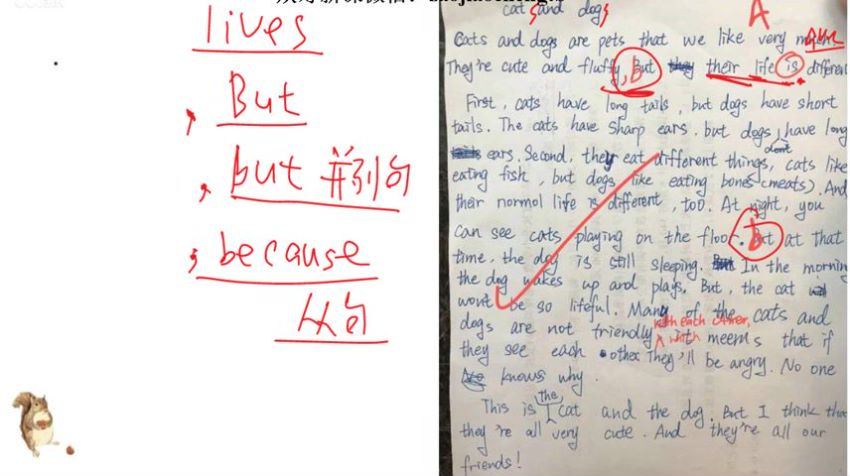 lives
, But
, but 并列句
, because
从句
cats and dogs
A
Cats and dogs are pets that we like very
They're cute and fluffy, But their life is different
First, cats have long tails, but dogs have short
tails. The cats have sharp ears, but dogs don't have long
ears. Second, they eat different things, cats like
eating fish, but dogs like eating bones (meats). And
their normol life is different, too. At night, you
can see cats playing on the floor. But at that
time, the dog is still sleeping. In the morning
the dog wakes up and plays. But, the cat
won't be so lifeful. Many of the cats and
dogs are not friendly with each other, with meems that if
they see each other They'll be angry. No one
knows why.
This is the cat and the dog. But I think that
they're all very cute. And they're all our
friends!